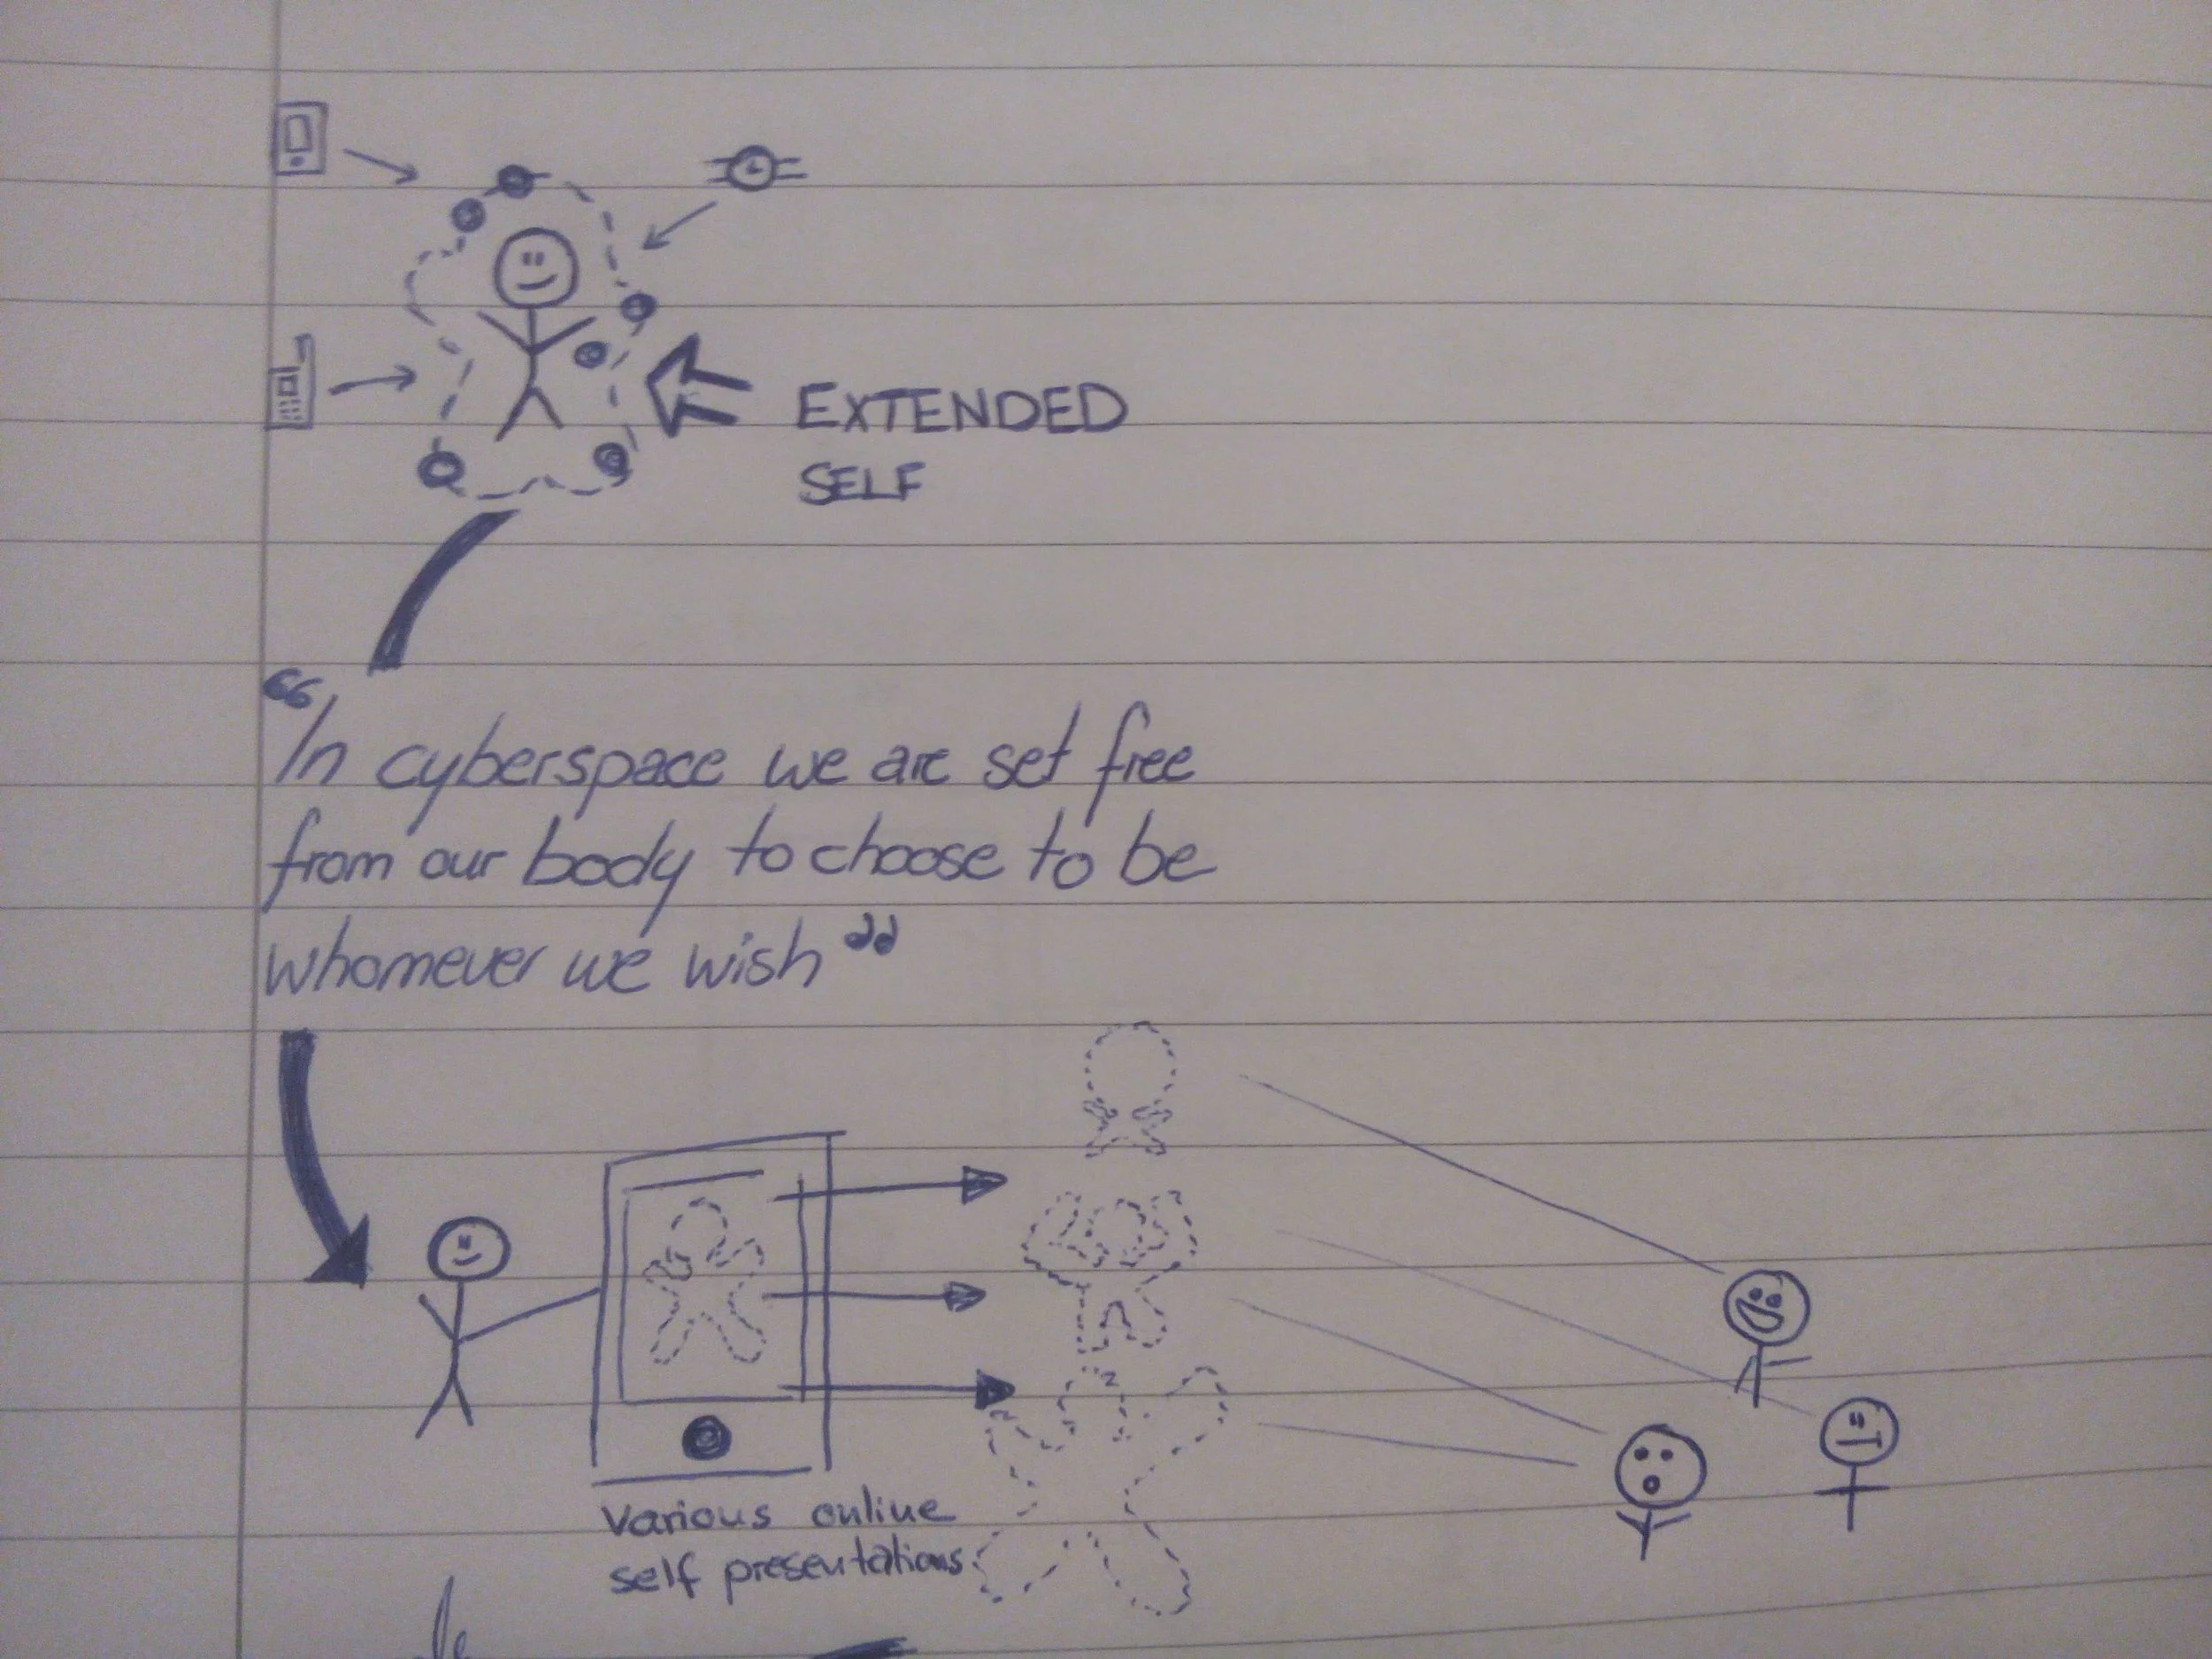 EXTENDED
SELF
“In cyberspace we are set free
from our body to choose to be
whomever we wish”
Various online
self presentations